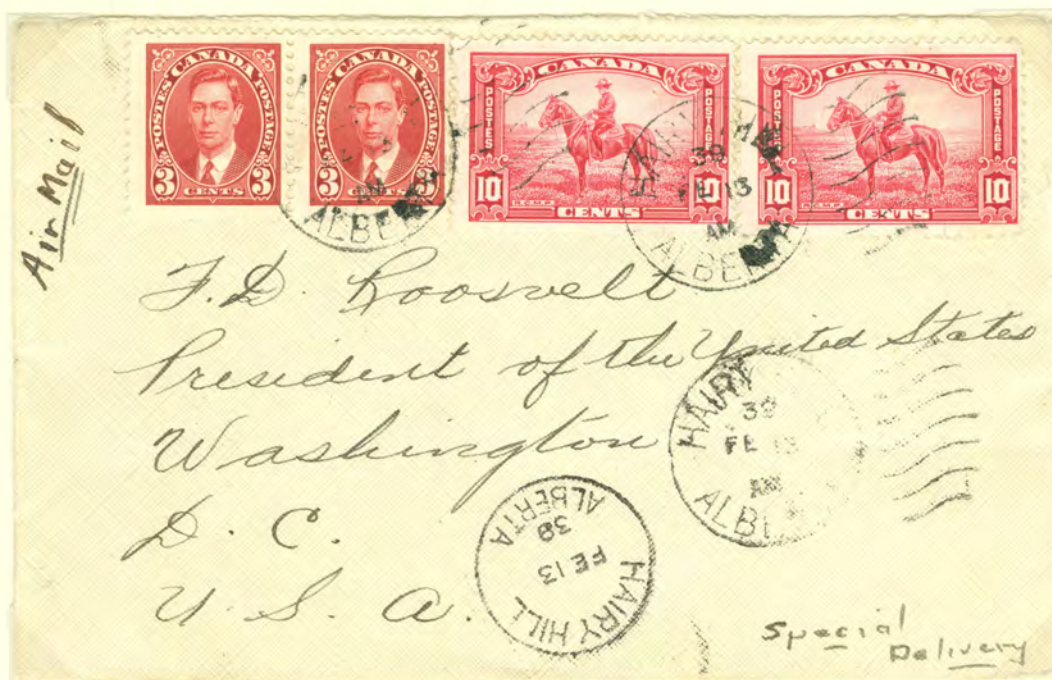 Air Mail
POSTES CANADA POSTAGE
3 CENTS 3
POSTES CANADA POSTAGE
3 CENTS 3
CANADA
POSTES POSTAGE
R.C.M.P.
10 CENTS 10
CANADA
POSTES POSTAGE
R.C.M.P.
10 CENTS 10
AM
ALBERTA
39
FE 13
AM
ALBERTA
F. D. Roosvelt
President of the United States
Washington
D. C.
U. S. A.
HAIRY
39
FE 13
AM
ALBERTA
HAIRY HILL
FE 13
39
ALBERTA
Special
Delivery